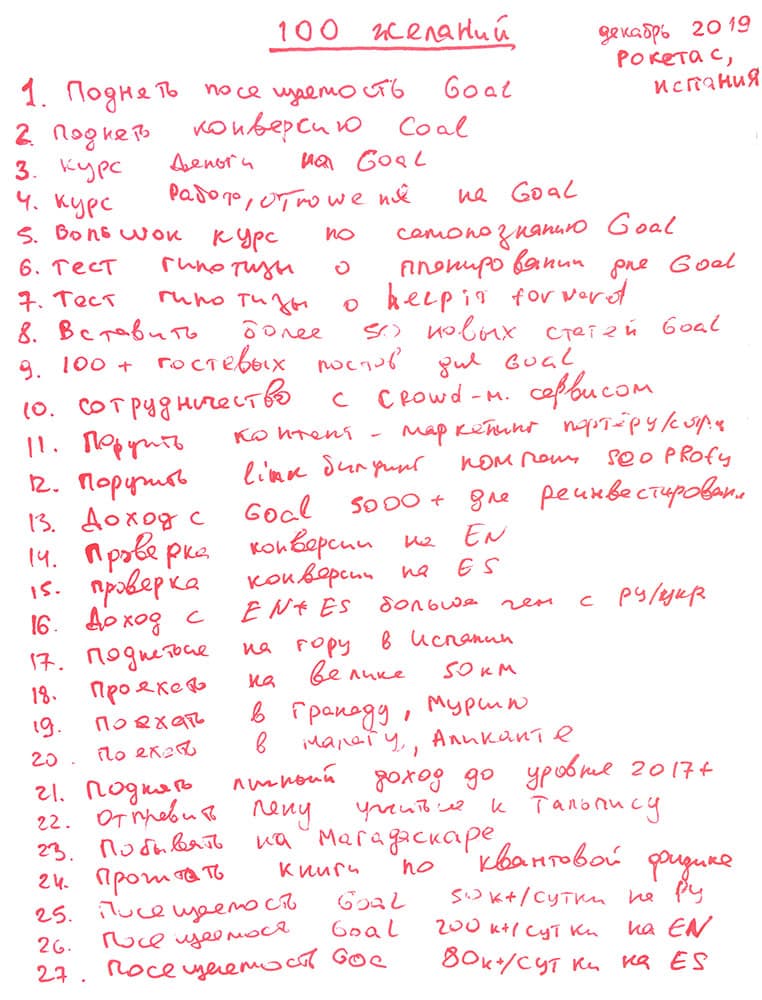 100 желаний
декабрь 2019
Рокетас,
Испания
1. Поднять посещаемость Goal
2. Поднять конверсию Goal
3. Курс Деньги на Goal
4. Курс Работа, отношения на Goal
5. Большой курс по самопознанию Goal
6. Тест гипотизы о планировании для Goal
7. Тест гипотизы о help it forward
8. Вставить более 50 новых статей Goal
9. 100+ гостевых постов для Goal
10. Сотрудничество с Crowd-м. сервисом
11. Поручить контент-маркетинг партнёру/
12. Поручить link билдинг компании SEO PROFy
13. Доход с Goal 5000+ для реинвестирован.
14. Проверка конверсии на EN
15. Проверка конверсии на ES
16. Доход с EN+ES больше чем с РУ/укр
17. Подняться на гору в Испании
18. Проехать на велике 50 км
19. Поехать в Гранаду, Мурсию
20. Поехать в Малагу, Аликанте
21. Поднять личный доход до уровня 2017+
22. Отправить Лену учиться к Тальпису
23. Побывать на Мадагаскаре
24. Прочитать книги по квантовой физике
25. Посещаемость Goal 50к+/сутки на РУ
26. Посещаемость Goal 200к+/сутки на EN
27. Посещаемость Goal 80к+/сутки на ES